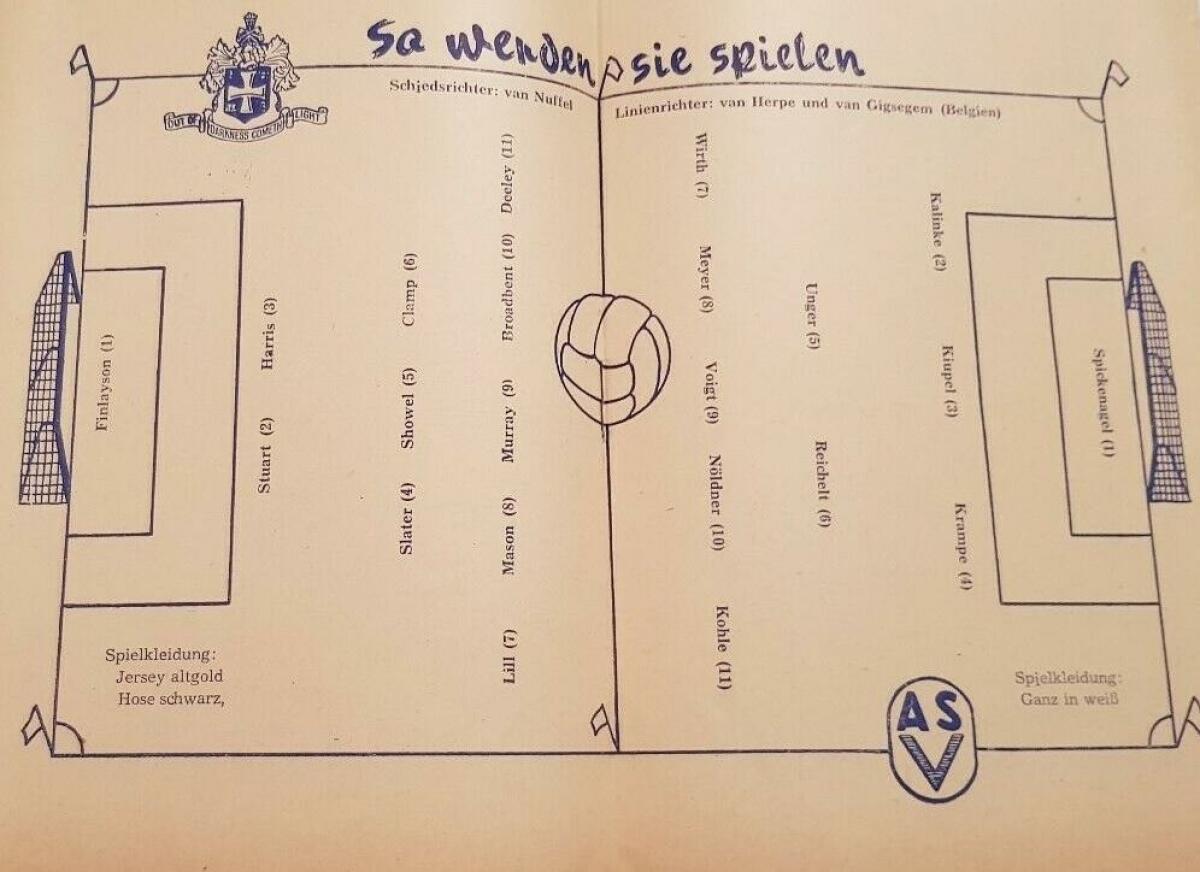 So werden sie spielen
Schjedsrichter: van Nuffel
Linienrichter: van Herpe und van Gigsegem (Belgien)
OUT OF DARKNESS COMETH LIGHT
Finlayson (1)
Harris (3)
Stuart (2)
Clamp (6)
Showel (5)
Slater (4)
Deeley (11)
Broadbent (10)
Murray (9)
Mason (8)
Lill (7)
Wirth (7)
Meyer (8)
Voigt (9)
Nöldner (10)
Kohle (11)
Unger (5)
Reichelt (6)
Kalinke (2)
Kiupel (3)
Krampe (4)
Spickenagel (1)
Spielkleidung:
Jersey altgold
Hose schwarz,
Spjelkleidung:
Ganz in weiß
ASV